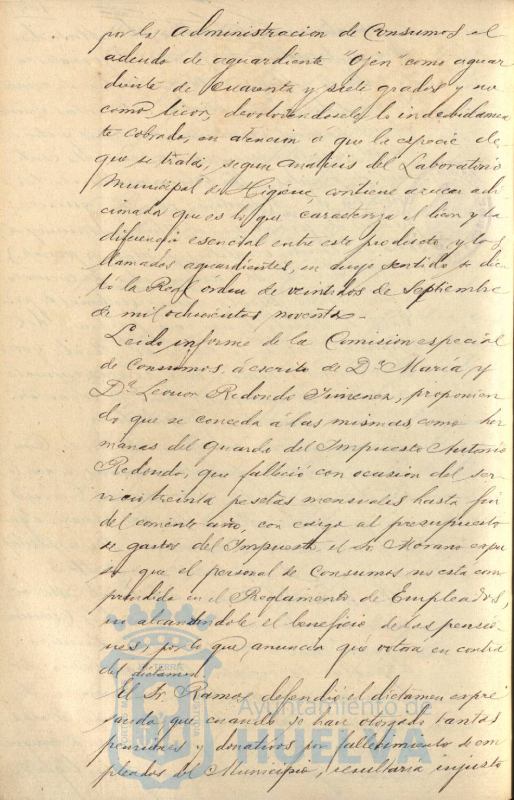 por la Administracion de Consumos el
adeudo de aguardiente "Ojen" como aguar
diente de cuarenta y siete grados y no
como licor, devolviendosele lo indebidamen
te cobrado, en atencion á que la especie de
que se trata, segun analisis del Laboratorio
Municipal de Higiene, contiene azucar adi
cionada que es lo que caracteriza el licor y la
diferencia esencial entre este producto y los
llamados aguardientes, en cuyo sentido se dic
tó la Real orden de veintidos de Septiembre
de mil ochocientos noventa.
Leido informe de la Comision especial
de Consumos, á escrito de Dª María y
Dª Leonor Redondo Jimenez, proponien
do que se conceda á las mismas como her
manas del guarda del Impuesto Antonio
Redondo, que falleció con ocasion del ser
vicio treinta pesetas mensuales hasta fin
del corriente año, con cargo al presupuesto
de gastos del Impuesto, el Sr. Morano expu
so que el personal de Consumos no está com
prendido en el Reglamento de Empleados,
no alcanzandole el beneficio de las pensio
nes, por lo que anuncia que votará en contra
del dictamen.
El Sr. Ramos defendió el dictamen expre
sando que cuando se han otorgado tantas
pensiones y donativos por fallecimiento de em
pleados del Municipio, resultaria injusto
Ayuntamiento de
HUELVA